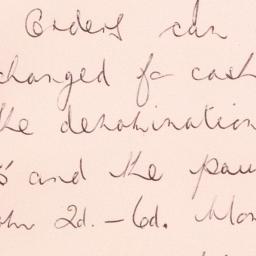 Orders can
changed for cash
the denomination
and the pou
2d. – 6d.